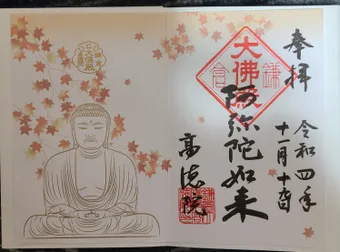 奉拝
令和四年
十一月十六日
大佛殿
鎌倉
阿弥陀如来
高徳院